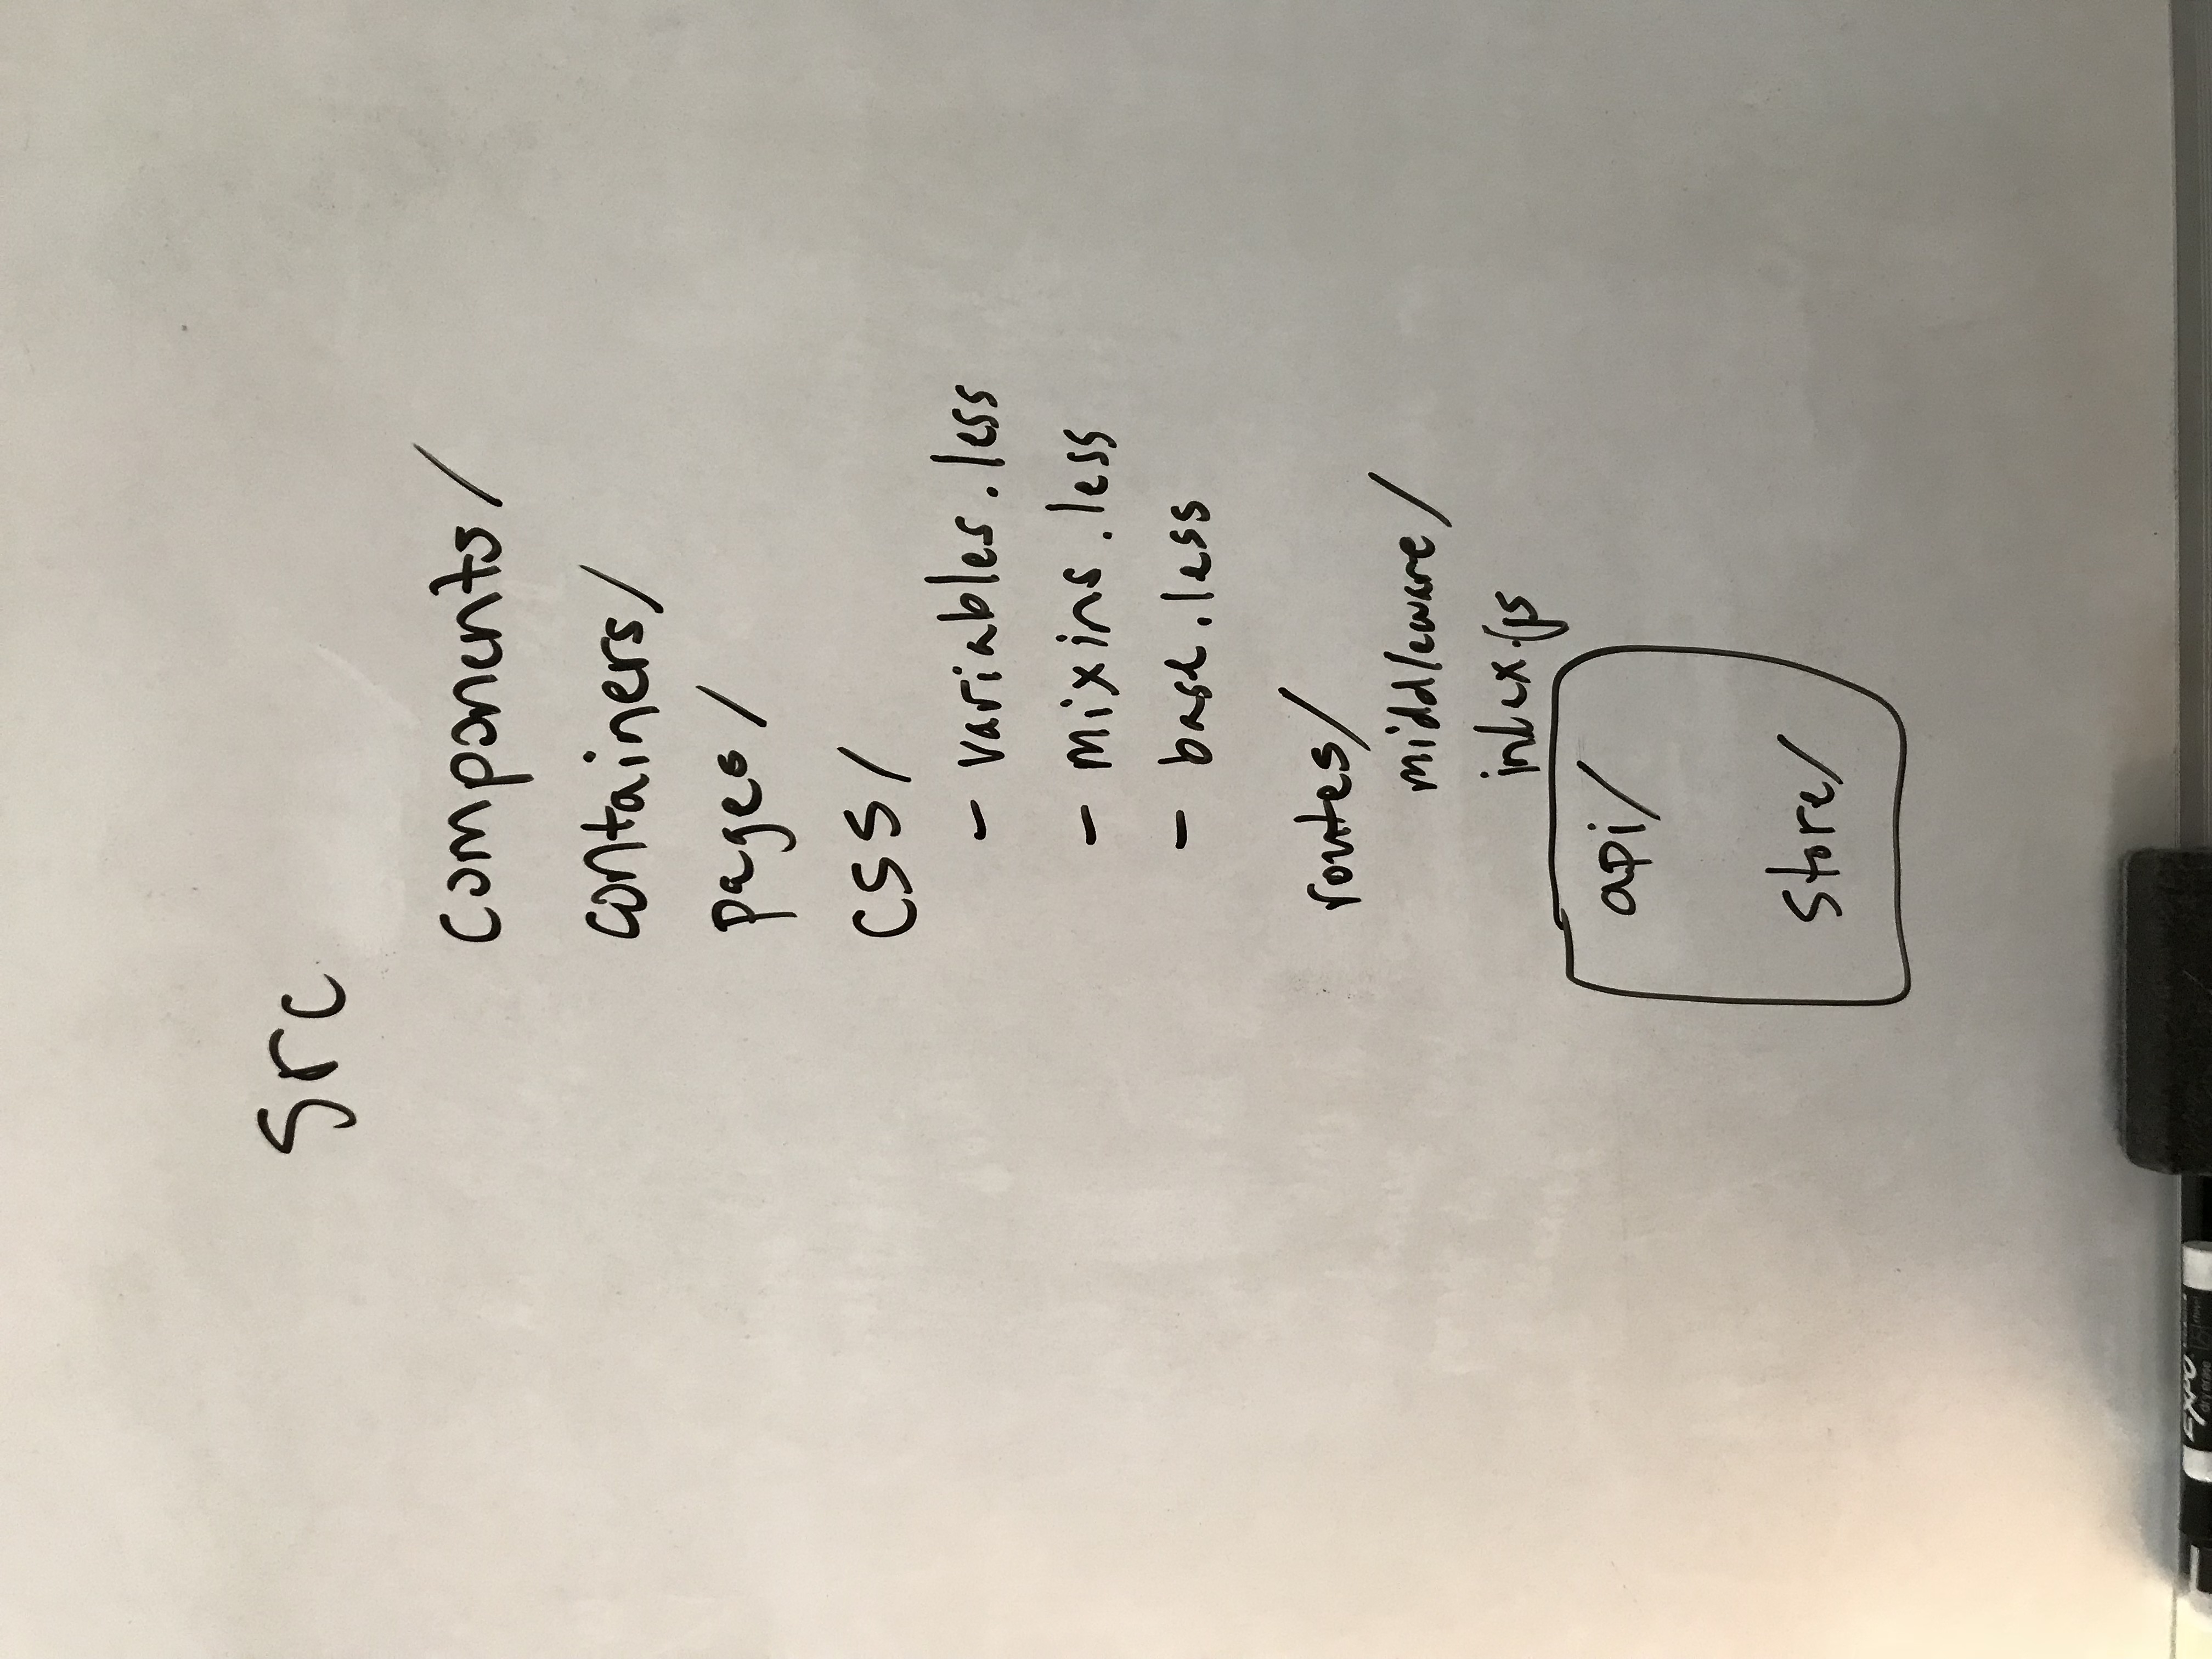 src
components/
containers/
pages/
css/
- variables.less
- mixins.less
- base.less
routes/
middleware/
index.js
api/
store/
EXPO
dry erase